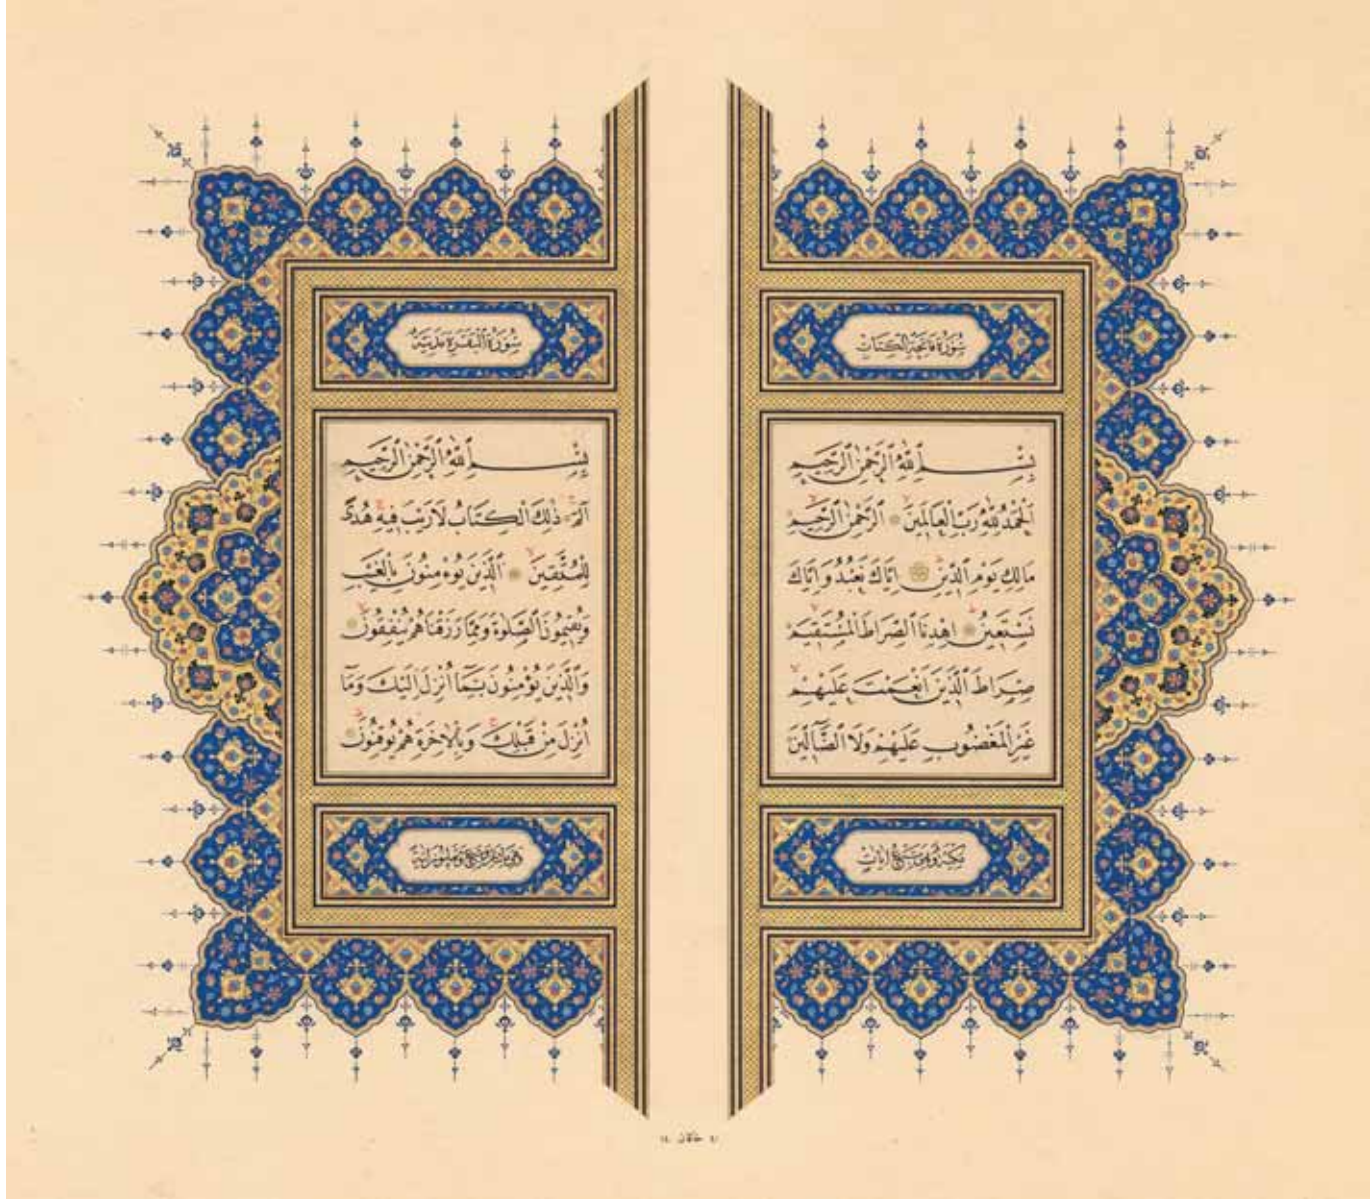 سُورَةُ فَاتِحَةِ الْكِتَابِ
بِسْمِ ٱللّٰهِ ٱلرَّحْمٰنِ ٱلرَّحِيمِ
اَلْحَمْدُ لِلّٰهِ رَبِّ الْعَالَمِينَ ٱلرَّحْمٰنِ ٱلرَّحِيمِ
مَالِكِ يَوْمِ ٱلدِّينِ اِيَّاكَ نَعْبُدُ وَاِيَّاكَ
نَسْتَعِينُ اِهْدِنَا ٱلصِّرَاطَ الْمُسْتَقِيمَ
صِرَاطَ ٱلَّذِينَ اَنْعَمْتَ عَلَيْهِمْ
غَيْرِ الْمَغْضُوبِ عَلَيْهِمْ وَلَا ٱلضَّٓالِّينَ
مَكِّيَّةٌ وَهِىَ سَبْعُ اٰيَاتٍ
سُورَةُ الْبَقَرَةِ مَدَنِيَّةٌ
بِسْمِ ٱللّٰهِ ٱلرَّحْمٰنِ ٱلرَّحِيمِ
الٓمٓ ذٰلِكَ الْكِتَابُ لَا رَيْبَ فِيهِ هُدًى
لِلْمُتَّقِينَ اَلَّذِينَ يُؤْمِنُونَ بِالْغَيْبِ
وَيُقِيمُونَ ٱلصَّلٰوةَ وَمِمَّا رَزَقْنَاهُمْ يُنْفِقُونَ
وَٱلَّذِينَ يُؤْمِنُونَ بِمَٓا اُنْزِلَ اِلَيْكَ وَمَٓا
اُنْزِلَ مِنْ قَبْلِكَ وَبِالْاٰخِرَةِ هُمْ يُوقِنُونَ